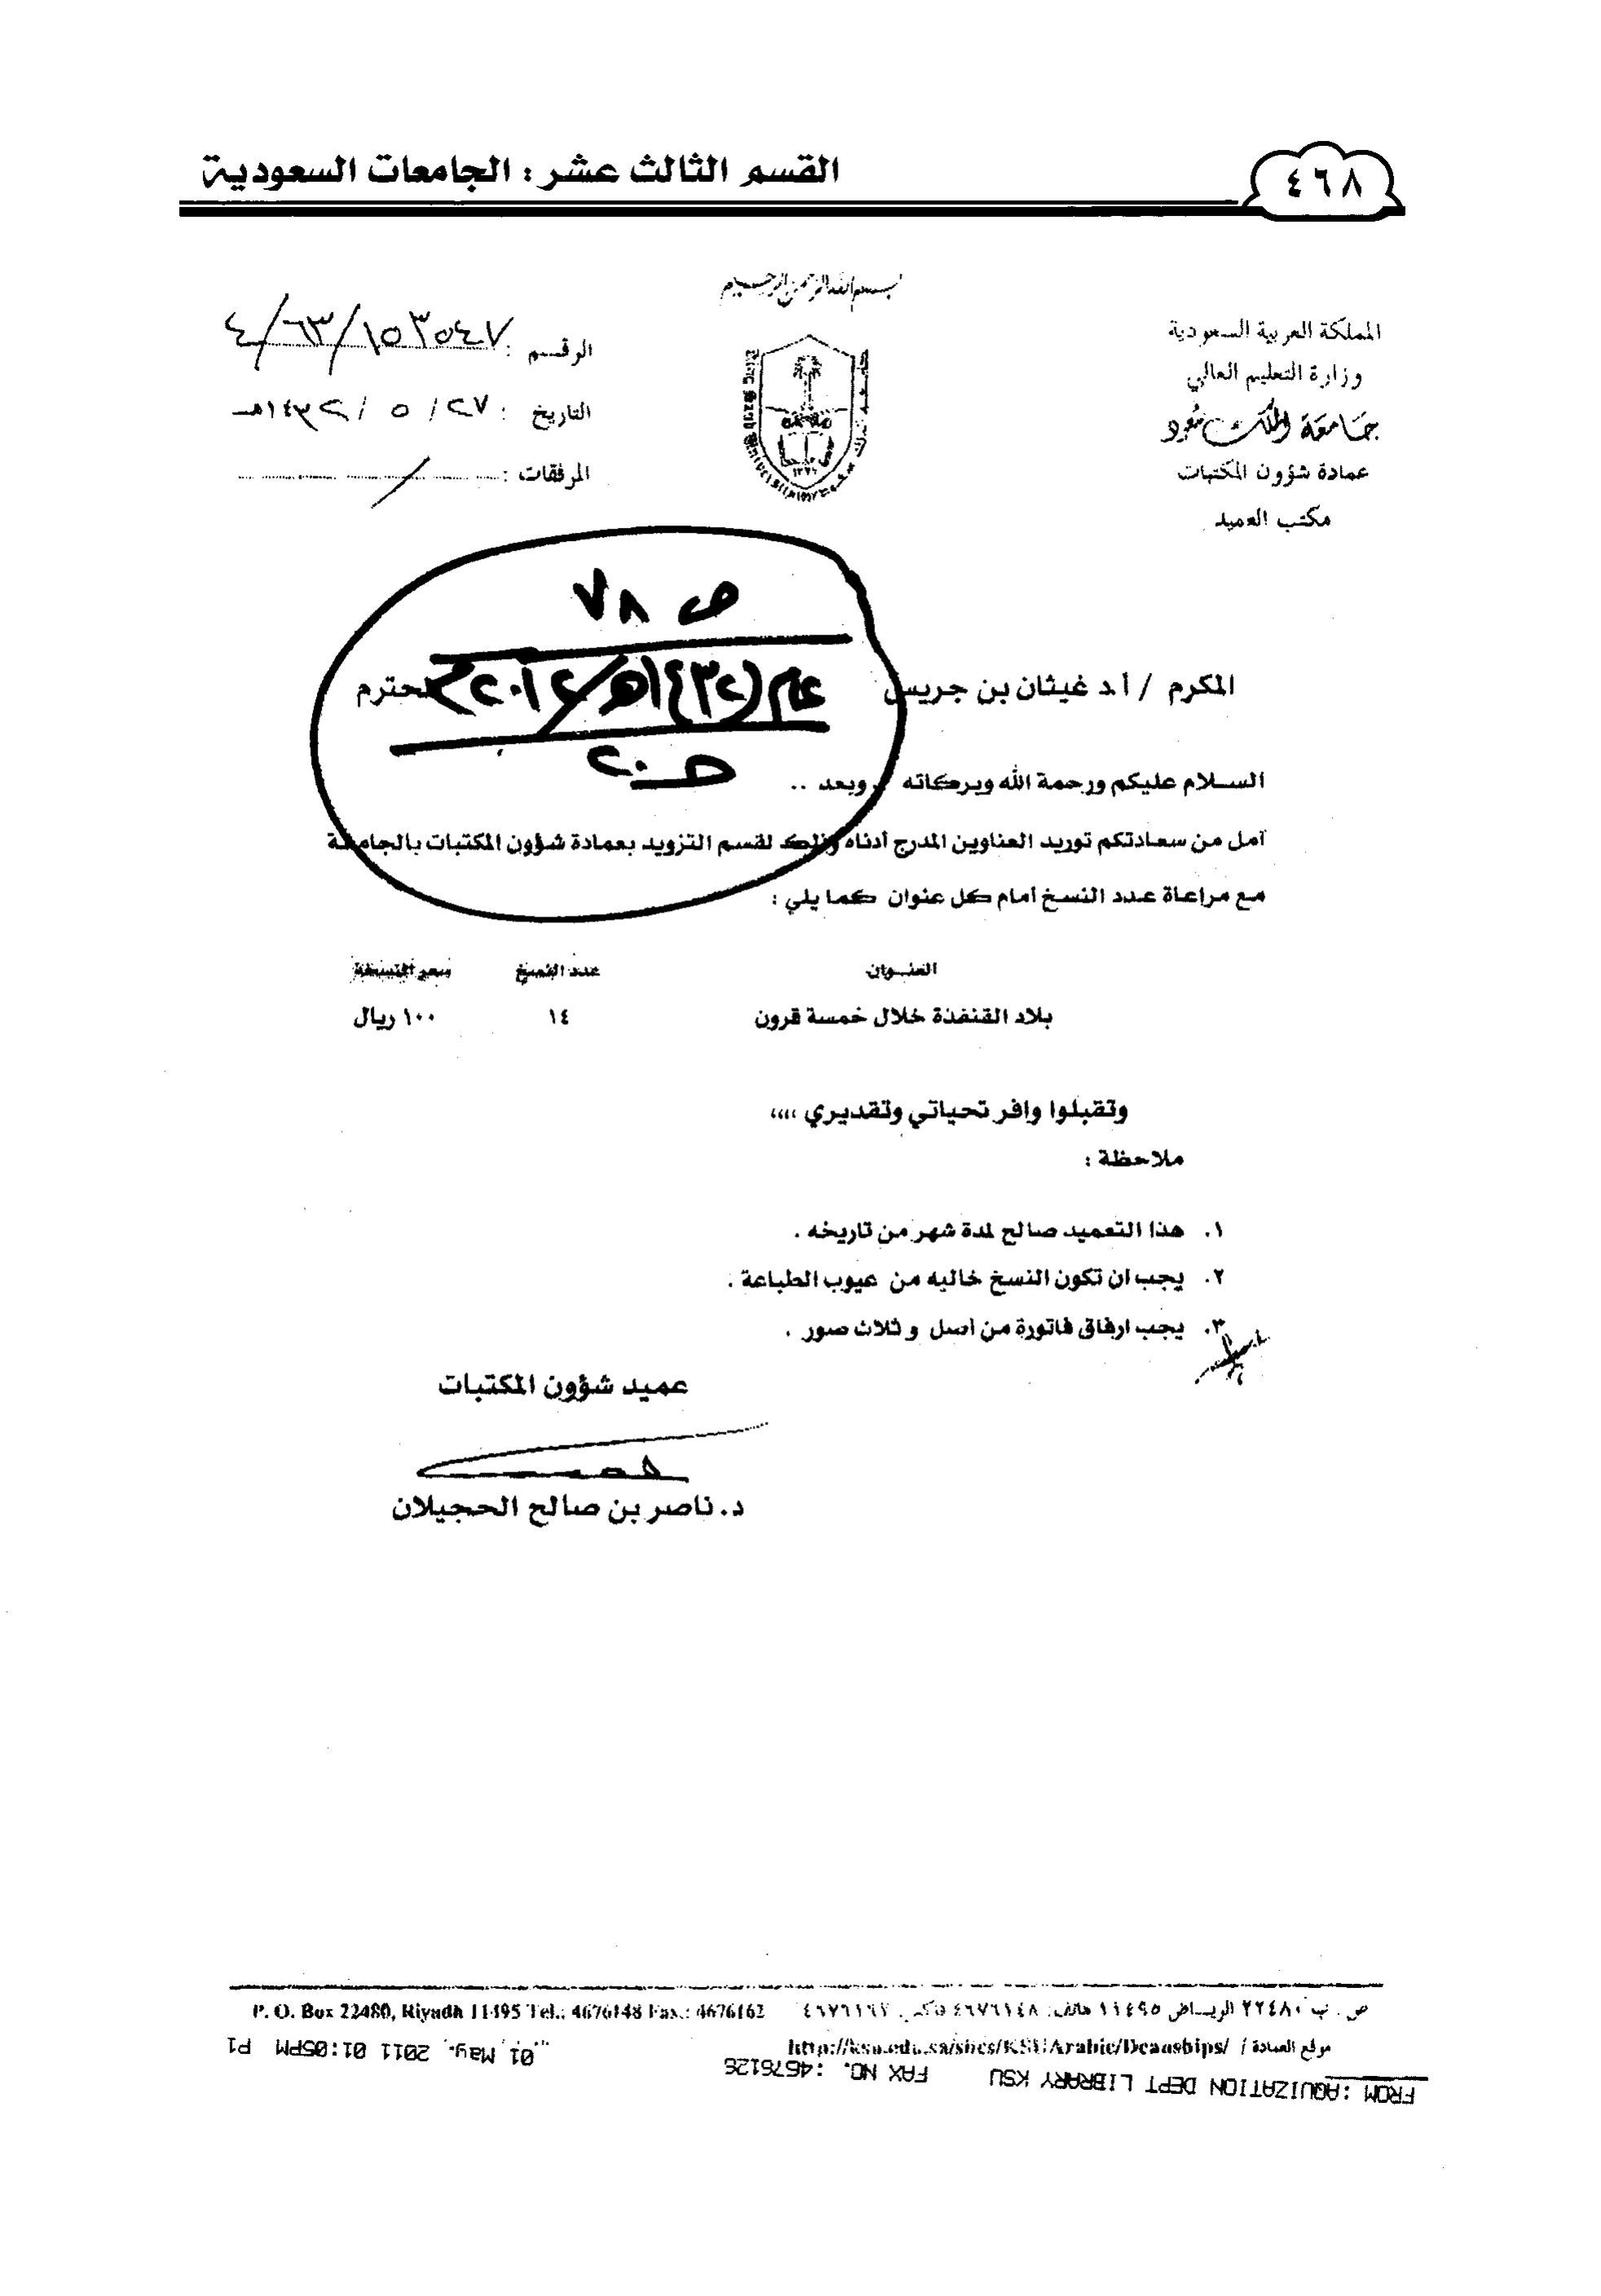 القسم الثالث عشر : الجامعات السعودية
٤٦٨
بسم الله الرحمن الرحيم
المملكة العربية السعودية
وزارة التعليم العالي
جامعة الملك سعود
عمادة شؤون المكتبات
مكتب العميد
الرقم : ٤/٦٣/١٥٣٥٤٧
التاريخ : ٢٧/ ٥ / ١٤٣٢هـ
المرفقات :
ص ٧٨
المكرم / أ.د غيثان بن جريس
السلام عليكم ورحمة الله وبركاته .. وبعد ..
آمل من سعادتكم توريد العناوين المدرج أدناه وذلك لقسم التزويد بعمادة شؤون المكتبات بالجامعة
مع مراعاة عدد النسخ أمام كل عنوان كما يلي :
العنوان عدد النسخ سعر النسخة
بلاد القنفذة خلال خمسة قرون ١٤ ١٠٠ ريال
وتقبلوا وافر تحياتي وتقديري ،،،،
ملاحظة :
١. هذا التعميد صالح لمدة شهر من تاريخه .
٢. يجب ان تكون النسخ خاليه من عيوب الطباعة .
٣. يجب ارفاق فاتورة من أصل و ثلاث صور .
عميد شؤون المكتبات
د. ناصر بن صالح الحجيلان
ص . ب ٢٢٤٨٠ الرياض ١١٤٩٥ هاتف: ٤٦٧٦١٤٨ فاكس: ٤٦٧٦١٦٢ P. O. Box 22480, Riyadh 11495 Tel.: 4676148 Fax.: 4676162
موقع العمادة / http://ksu.edu.sa/sites/KSUArabic/Deanships/
FROM :AQUIZATION DEPT LIBRARY KSU FAX NO. :4676126 01 May. 2011 01:05PM P1